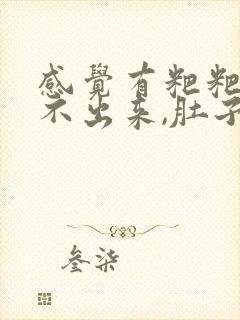 感覺有粑粑
不出来,肚子
叁柒